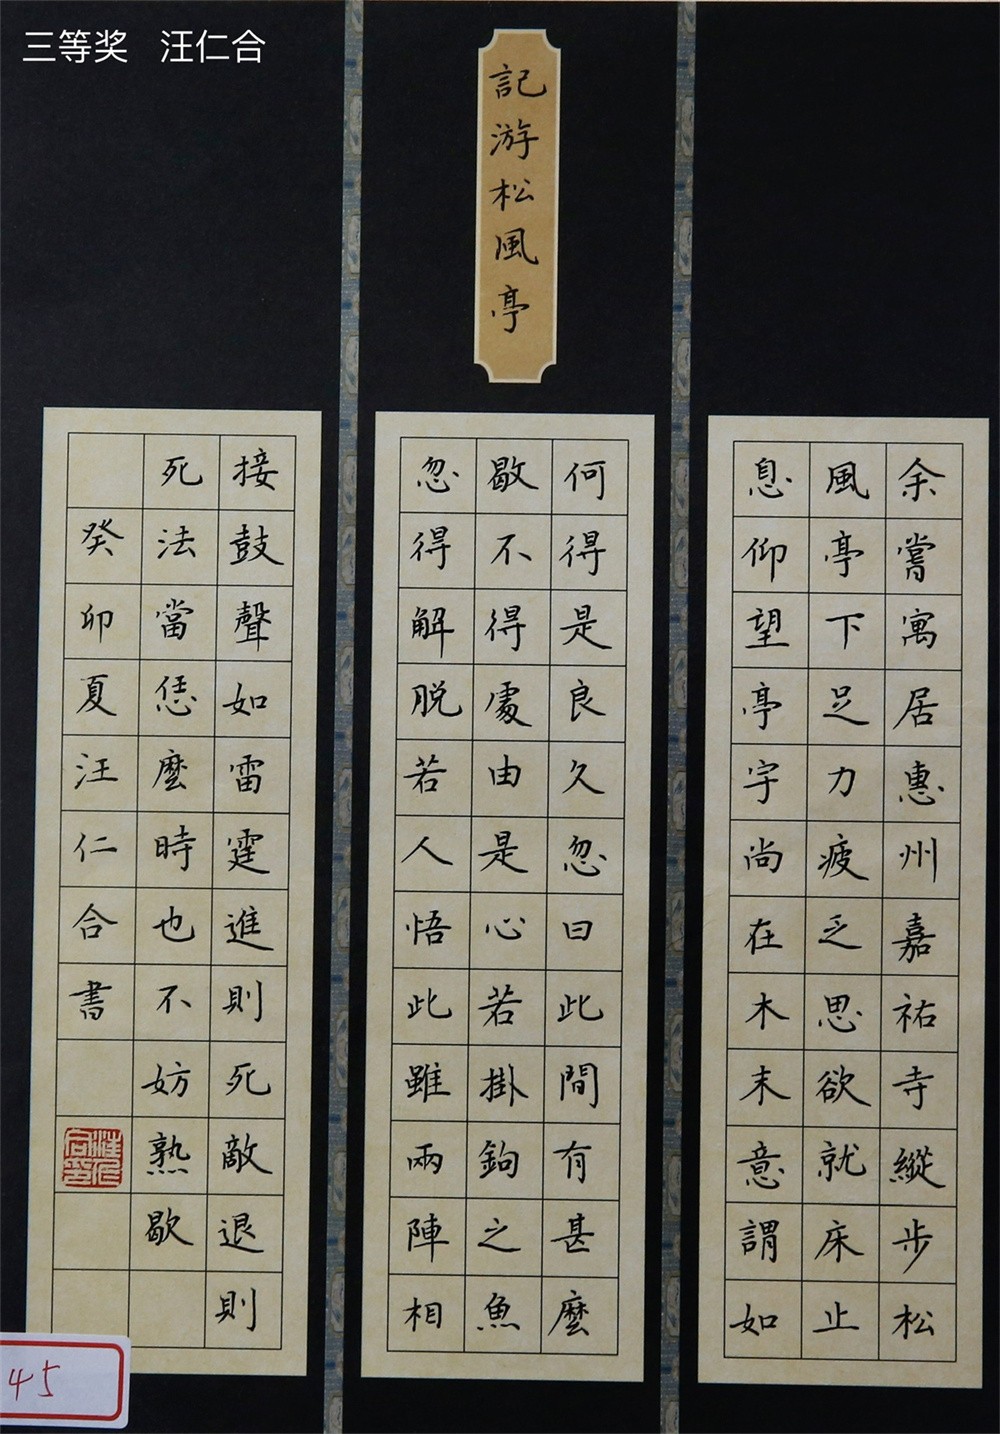 三等奖 汪仁合
記游松風亭
余嘗寓居惠州嘉祐寺縱步松
風亭下足力疲乏思欲就床止
息仰望亭宇尚在木末意謂如
何得是良久忽曰此間有甚麼
歇不得處由是心若掛鉤之魚
忽得解脱若人悟此雖兩陣相
接鼓聲如雷霆進則死敵退則
死法當恁麼時也不妨熟歇
癸卯夏汪仁合書
45